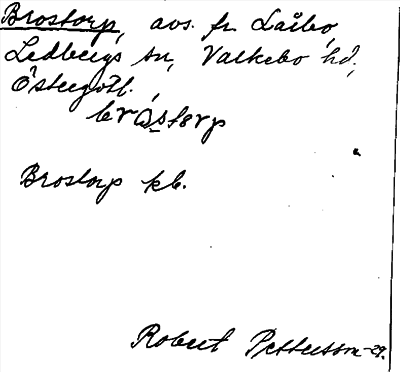 Brostorp, avs. fr. Låibo,
Ledbergs sn, Valkebo hd,
Östergötl.
Brostorp kb.
Robert Pettersson -29.